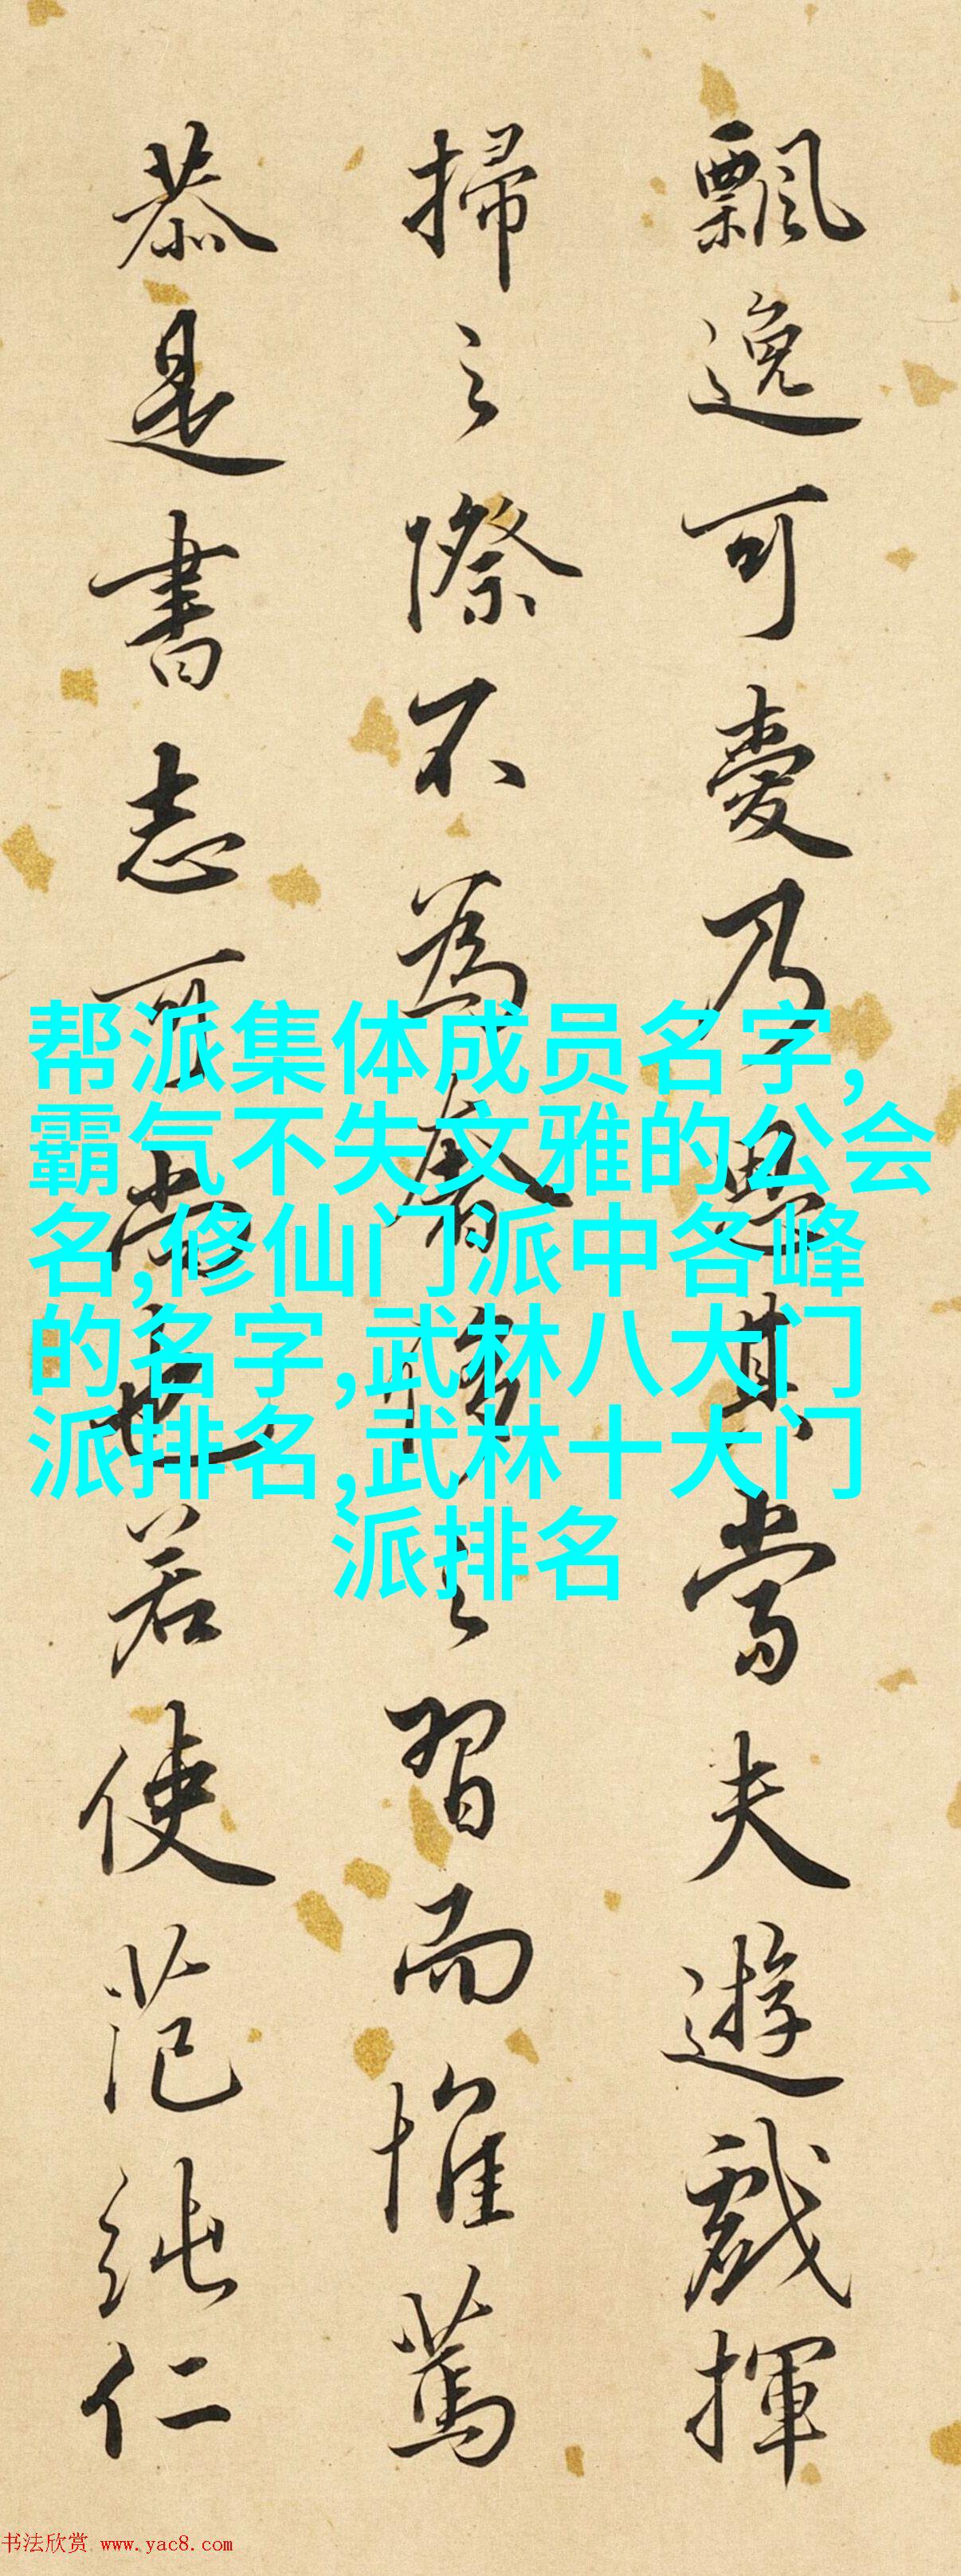 飄逸可愛乃是其當夫遊戲揮
掃之際不為意務之習而惟篤
恭是書志可尚也若使范純仁
帮派集体成员名字,
霸气不失文雅的公会
名,修仙门派中各峰
的名字,武林八大门
派排名,武林十大门
派排名
书法欣赏 www.yac8.com